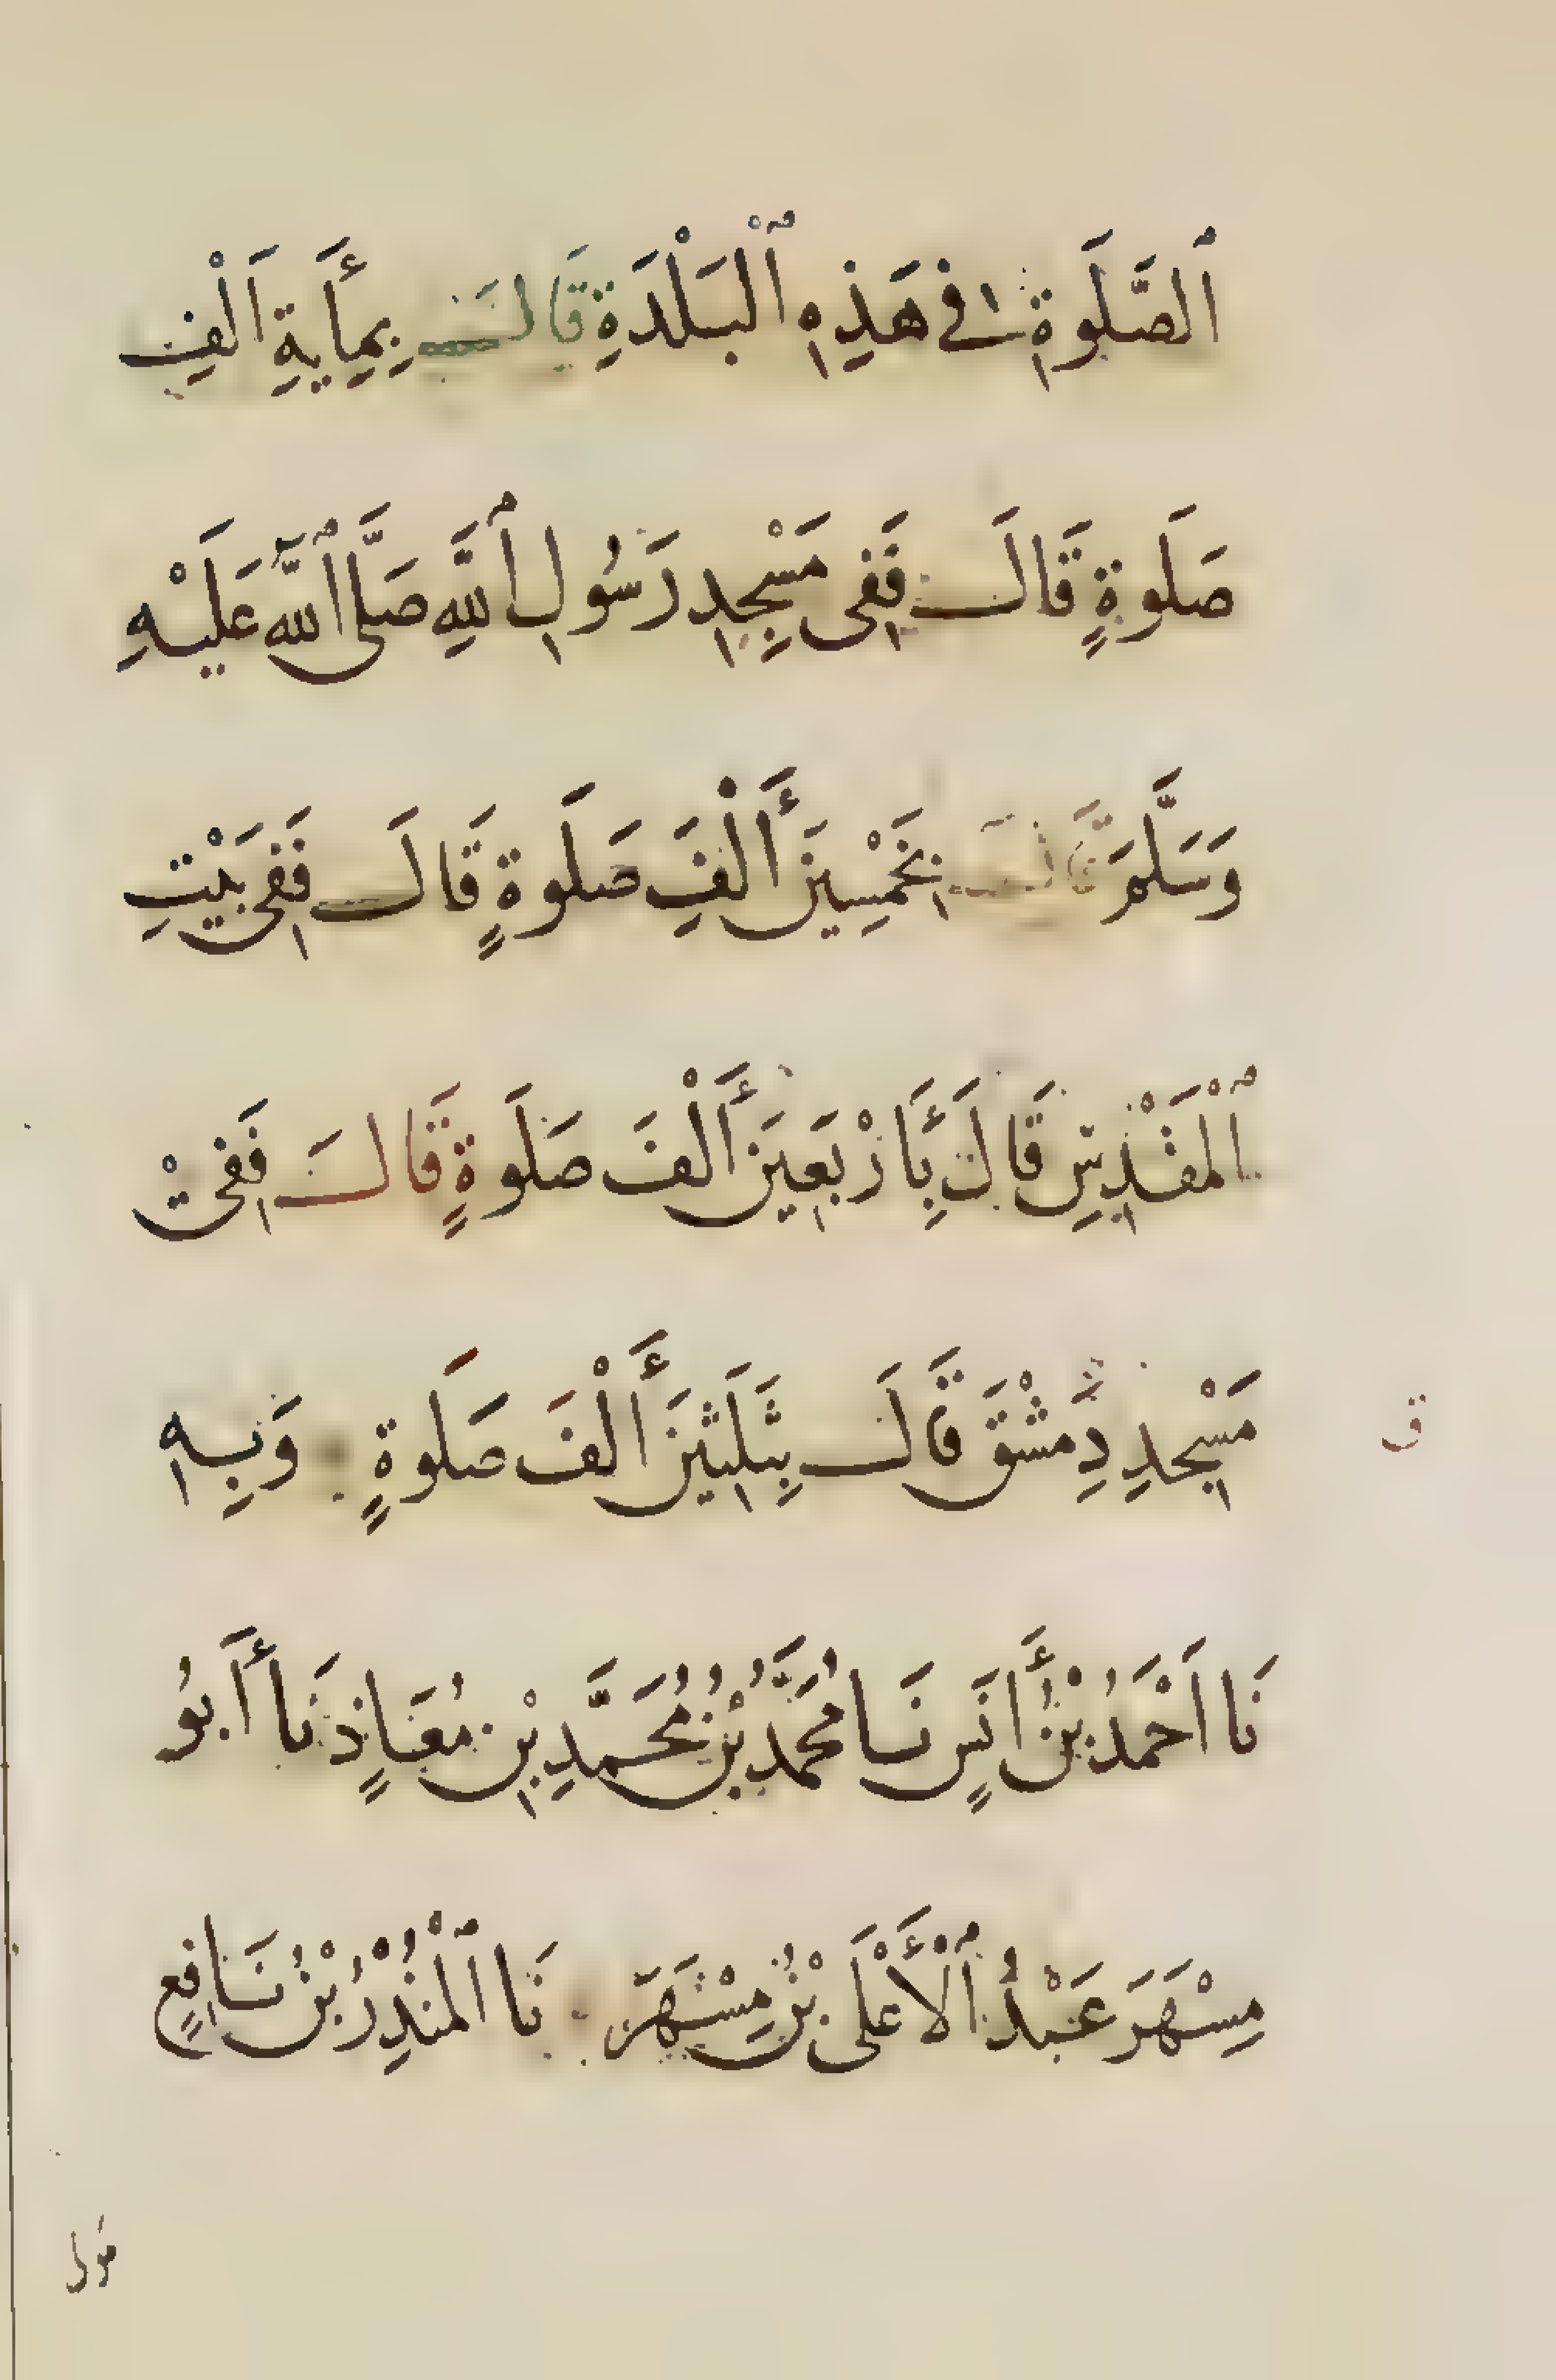 ٱلصَّلَوةِ فِي هَذِهِ ٱلْبَلْدَةِ قَالَ بِمِأَيةِ اَلْفِ
صَلَوةٍ قَالَ فَفِى مَسْجِدِ رَسُولِ ٱللَّهِ صَلَّى ٱللَّهُ عَلَيْهِ
وَسَلَّمَ قَالَ بِخَمْسِينَ أَلْفِ صَلَوةٍ قَالَ فَفِى بَيْتِ
ٱلْمَقْدِسِ قَالَ بِأَرْبَعِينَ أَلْفَ صَلَوةٍ قَالَ فَفِى
مَسْجِدِ دِمَشْقَ قَالَ بِثَلَثِينَ أَلْفَ صَلَوةٍ وَبِهِ
نَا اَحْمَدُ بْنُ أَنَسٍ نَا مُحَمَّدُ بْنُ مُحَمَّدِ بْنِ مُعَاذٍ نَا أَبُو
مِسْهَرَ عَبْدُ ٱلْأَعْلَى بْنُ مِسْهَرَ نَا ٱلْمُنْذِرُ بْنُ نَافِعٍ
ق
مول